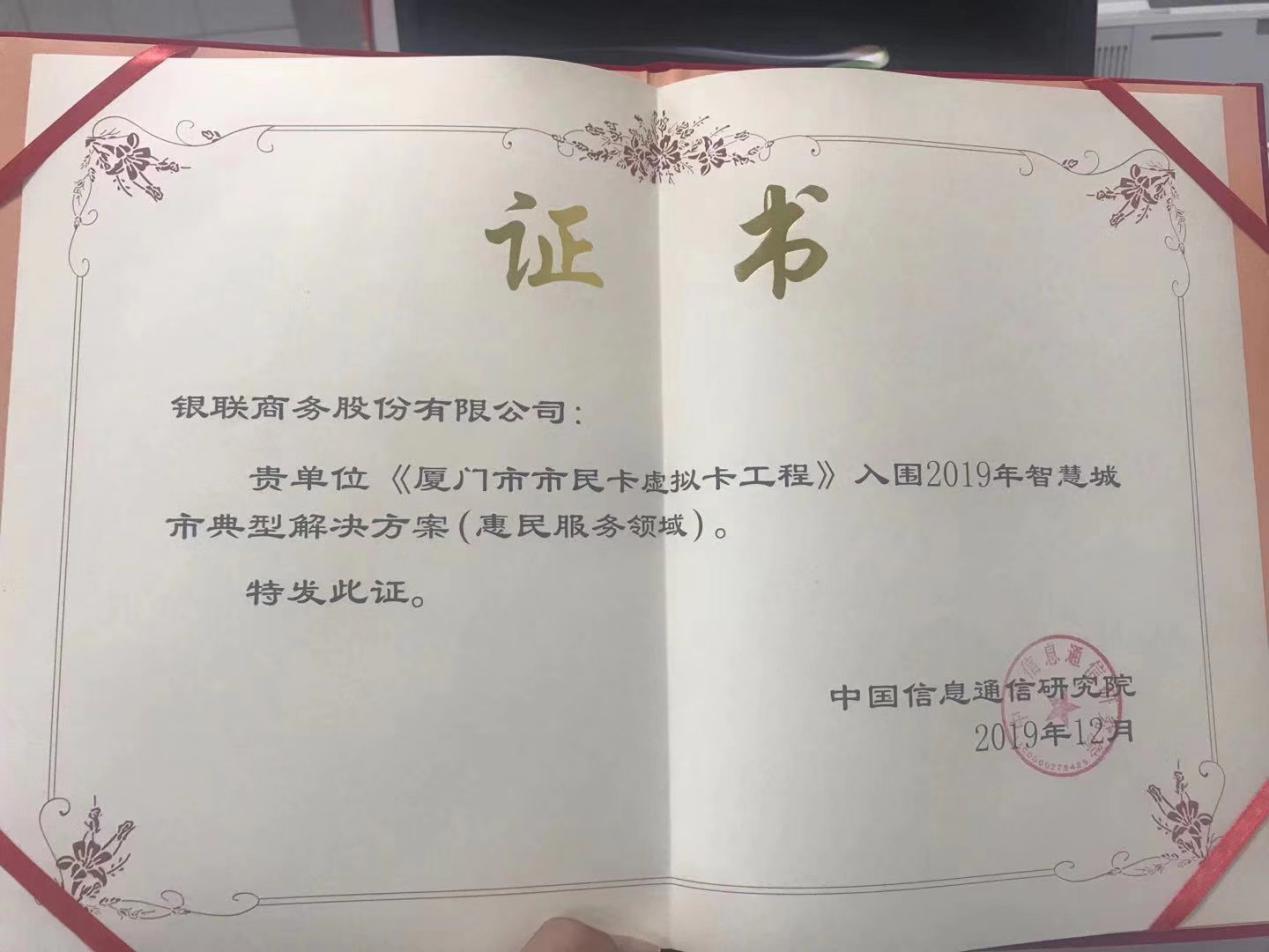 证 书
银联商务股份有限公司：
贵单位《厦门市市民卡虚拟卡工程》入围2019年智慧城
市典型解决方案(惠民服务领域)。
特发此证。
中国信息通信研究院
2019年12月